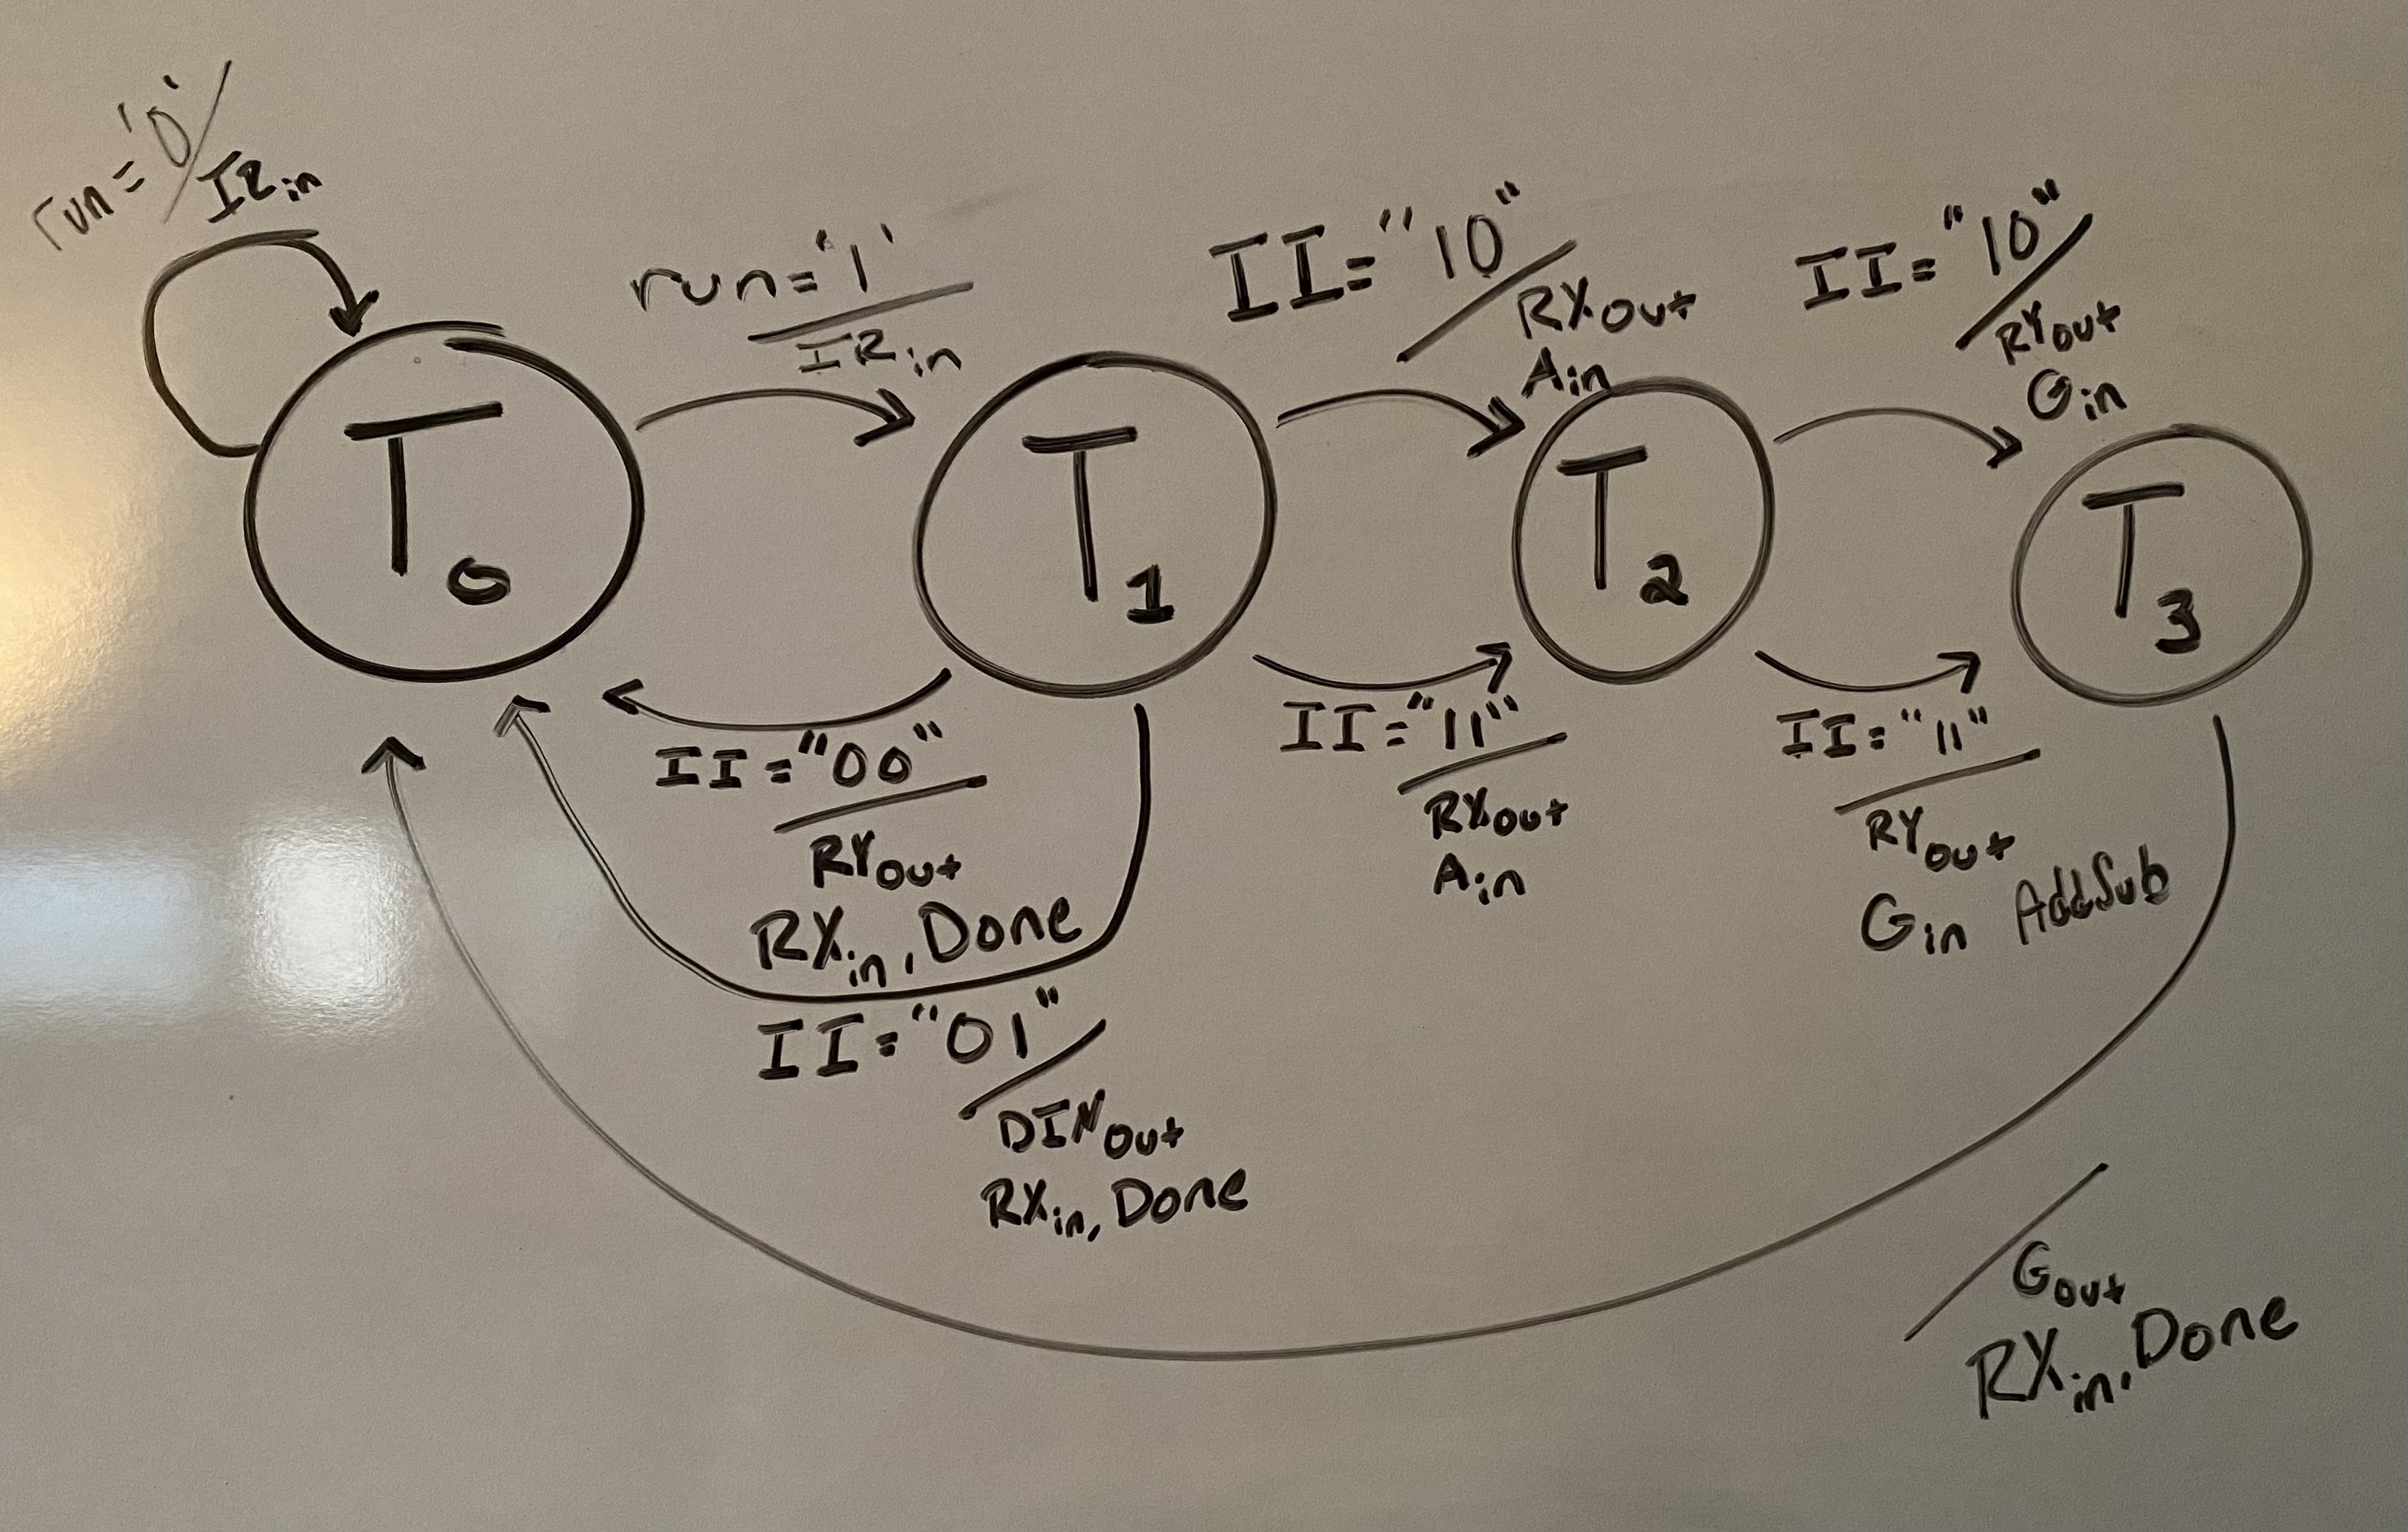 run='0'/
IRin
run='1'
IRin
II="10"/
RXout
Ain
II="10"/
RYout
Gin
T0
T1
T2
T3
II="00"
RYout
RXin, Done
II="11"
RXout
Ain
II="11"
RYout
Gin AddSub
II="01"/
DINout
RXin, Done
/
Gout
RXin, Done